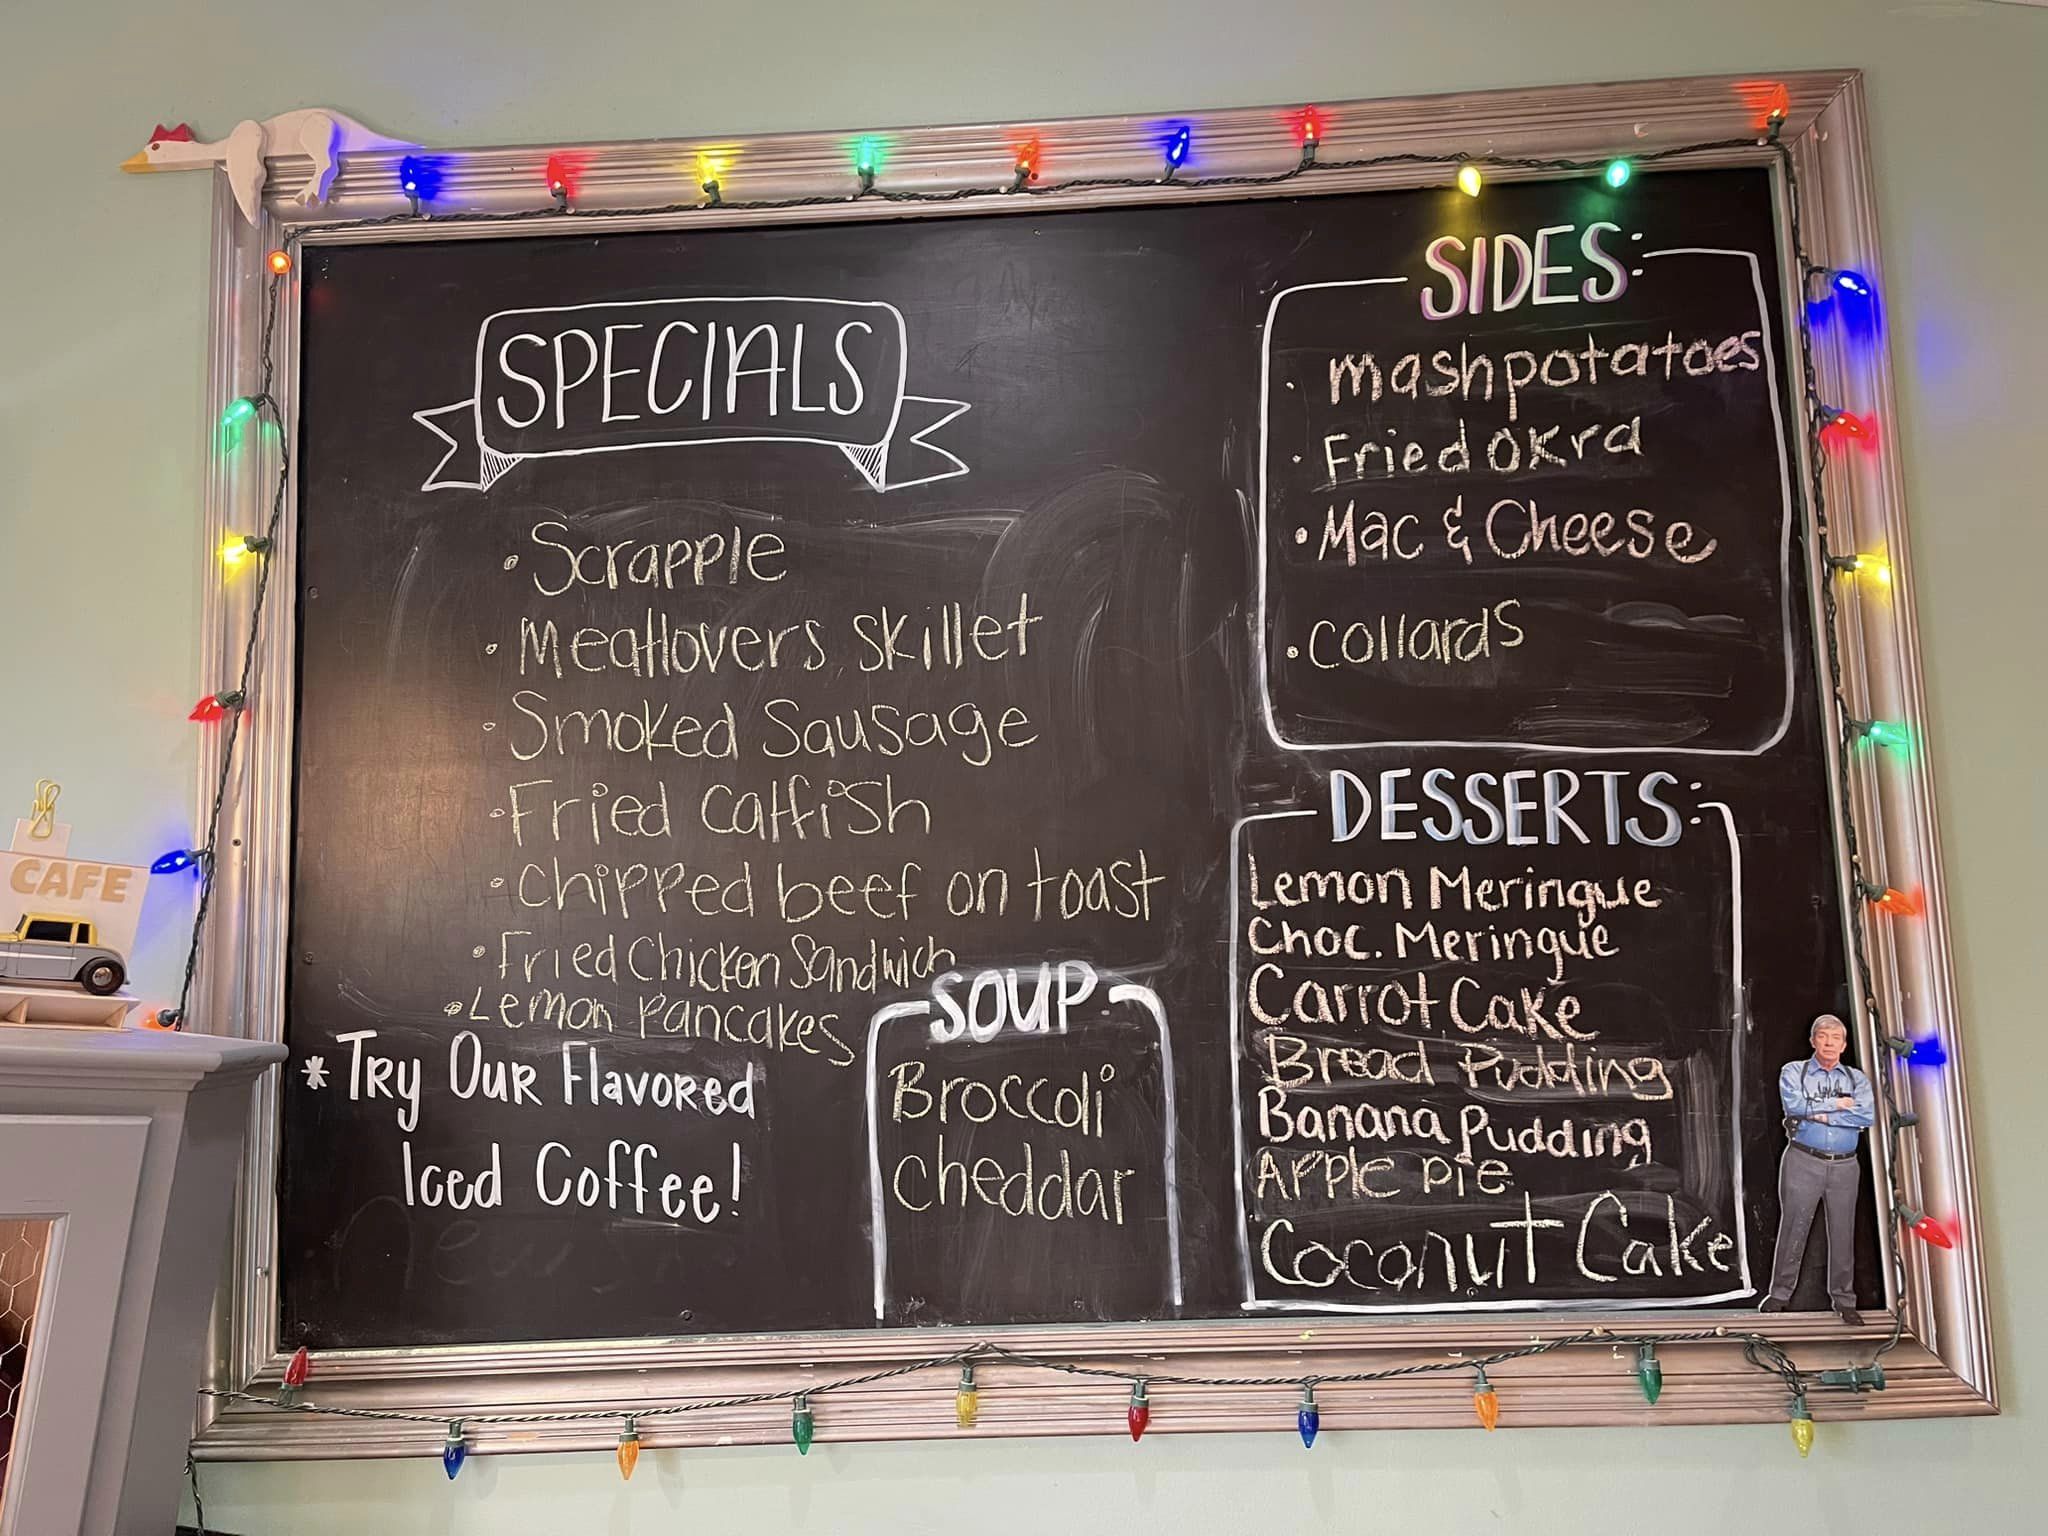 SPECIALS
• Scrapple
• Meatlovers Skillet
• Smoked Sausage
• Fried catfish
• Chipped beef on toast
• Fried Chicken Sandwich
• Lemon Pancakes
* Try Our Flavored
Iced Coffee!
SOUP:
Broccoli
cheddar
SIDES:
• mashpotatoes
• Fried OKra
• Mac & Cheese
• collards
DESSERTS:
Lemon Meringue
Choc. Meringue
Carrot Cake
Bread Pudding
Banana Pudding
Apple pie
Coconut Cake
CAFE